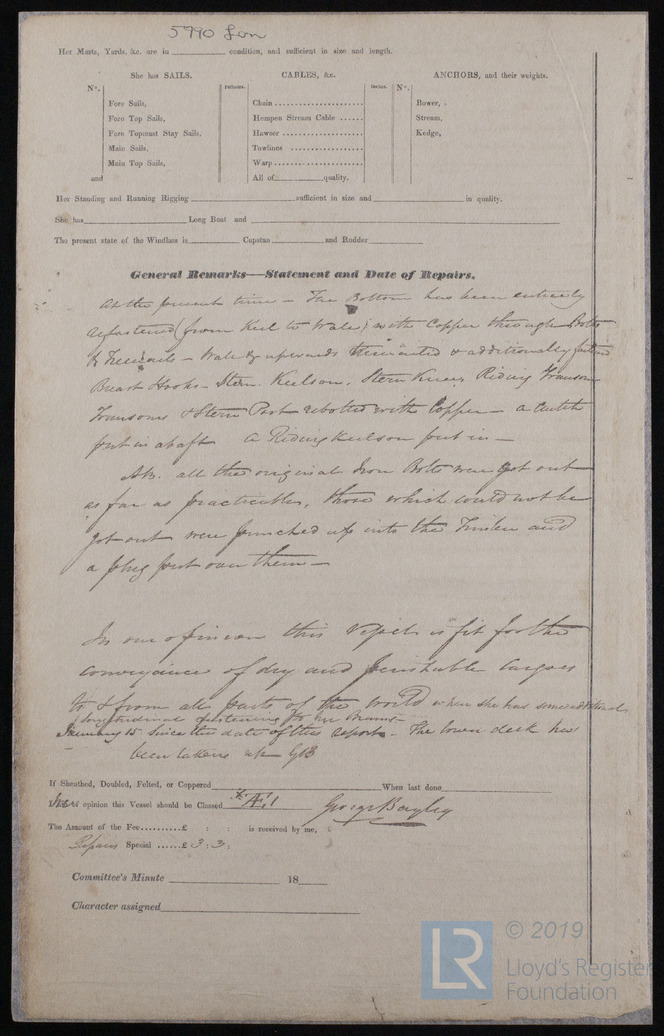 5790 Lon
Her Masts, Yards, &c. are in ____ condition, and sufficient in size and length.
She has SAILS. CABLES, &c. ANCHORS, and their weights.
No. Fathoms. Inches. No.
Fore Sails, Chain Bower,
Fore Top Sails, Hempen Stream Cable Stream,
Fore Topmast Stay Sails, Hawser Kedge,
Main Sails, Towlines
Main Top Sails, Warp
and All of ____ quality.
Her Standing and Running Rigging ____ sufficient in size and ____ in quality.
She has ____ Long Boat and ____
The present state of the Windlass is ____ Capstan ____ and Rudder ____
General Remarks—Statement and Date of Repairs.
At the present time – The Bottom has been entirely
refastened (from Keel to Wale) with Copper through Bolts
& Treenails – Wale & upwards & additionally
Breast Hooks – Stem. Keelson. Stern Knees Riding Transom
Transoms & Stern Post rebolted with Copper – a Clutch
put in abaft a Riding Keelson put in –
NB. all the original Iron Bolts were got out
as far as practicable, those which could not be
got out were punched up into the Timber and
a plug put over them –
In our opinion this Vessel is fit for the
conveyance of dry and perishable cargoes
to & from all parts of the world when she has some additional
longitudinal fastening to her Beams –
January 15 since the date of this report – The lower deck has
been taken up GB
If Sheathed, Doubled, Felted, or Coppered ____ When last done ____
opinion this Vessel should be Classed * Æ 1 George Bayley
The Amount of the Fee £ : : is received by me,
Repairs Special £ 3 : 3 :
Committee's Minute ____ 18 ____
Character assigned ____
© 2019
LR
Lloyd's Register
Foundation